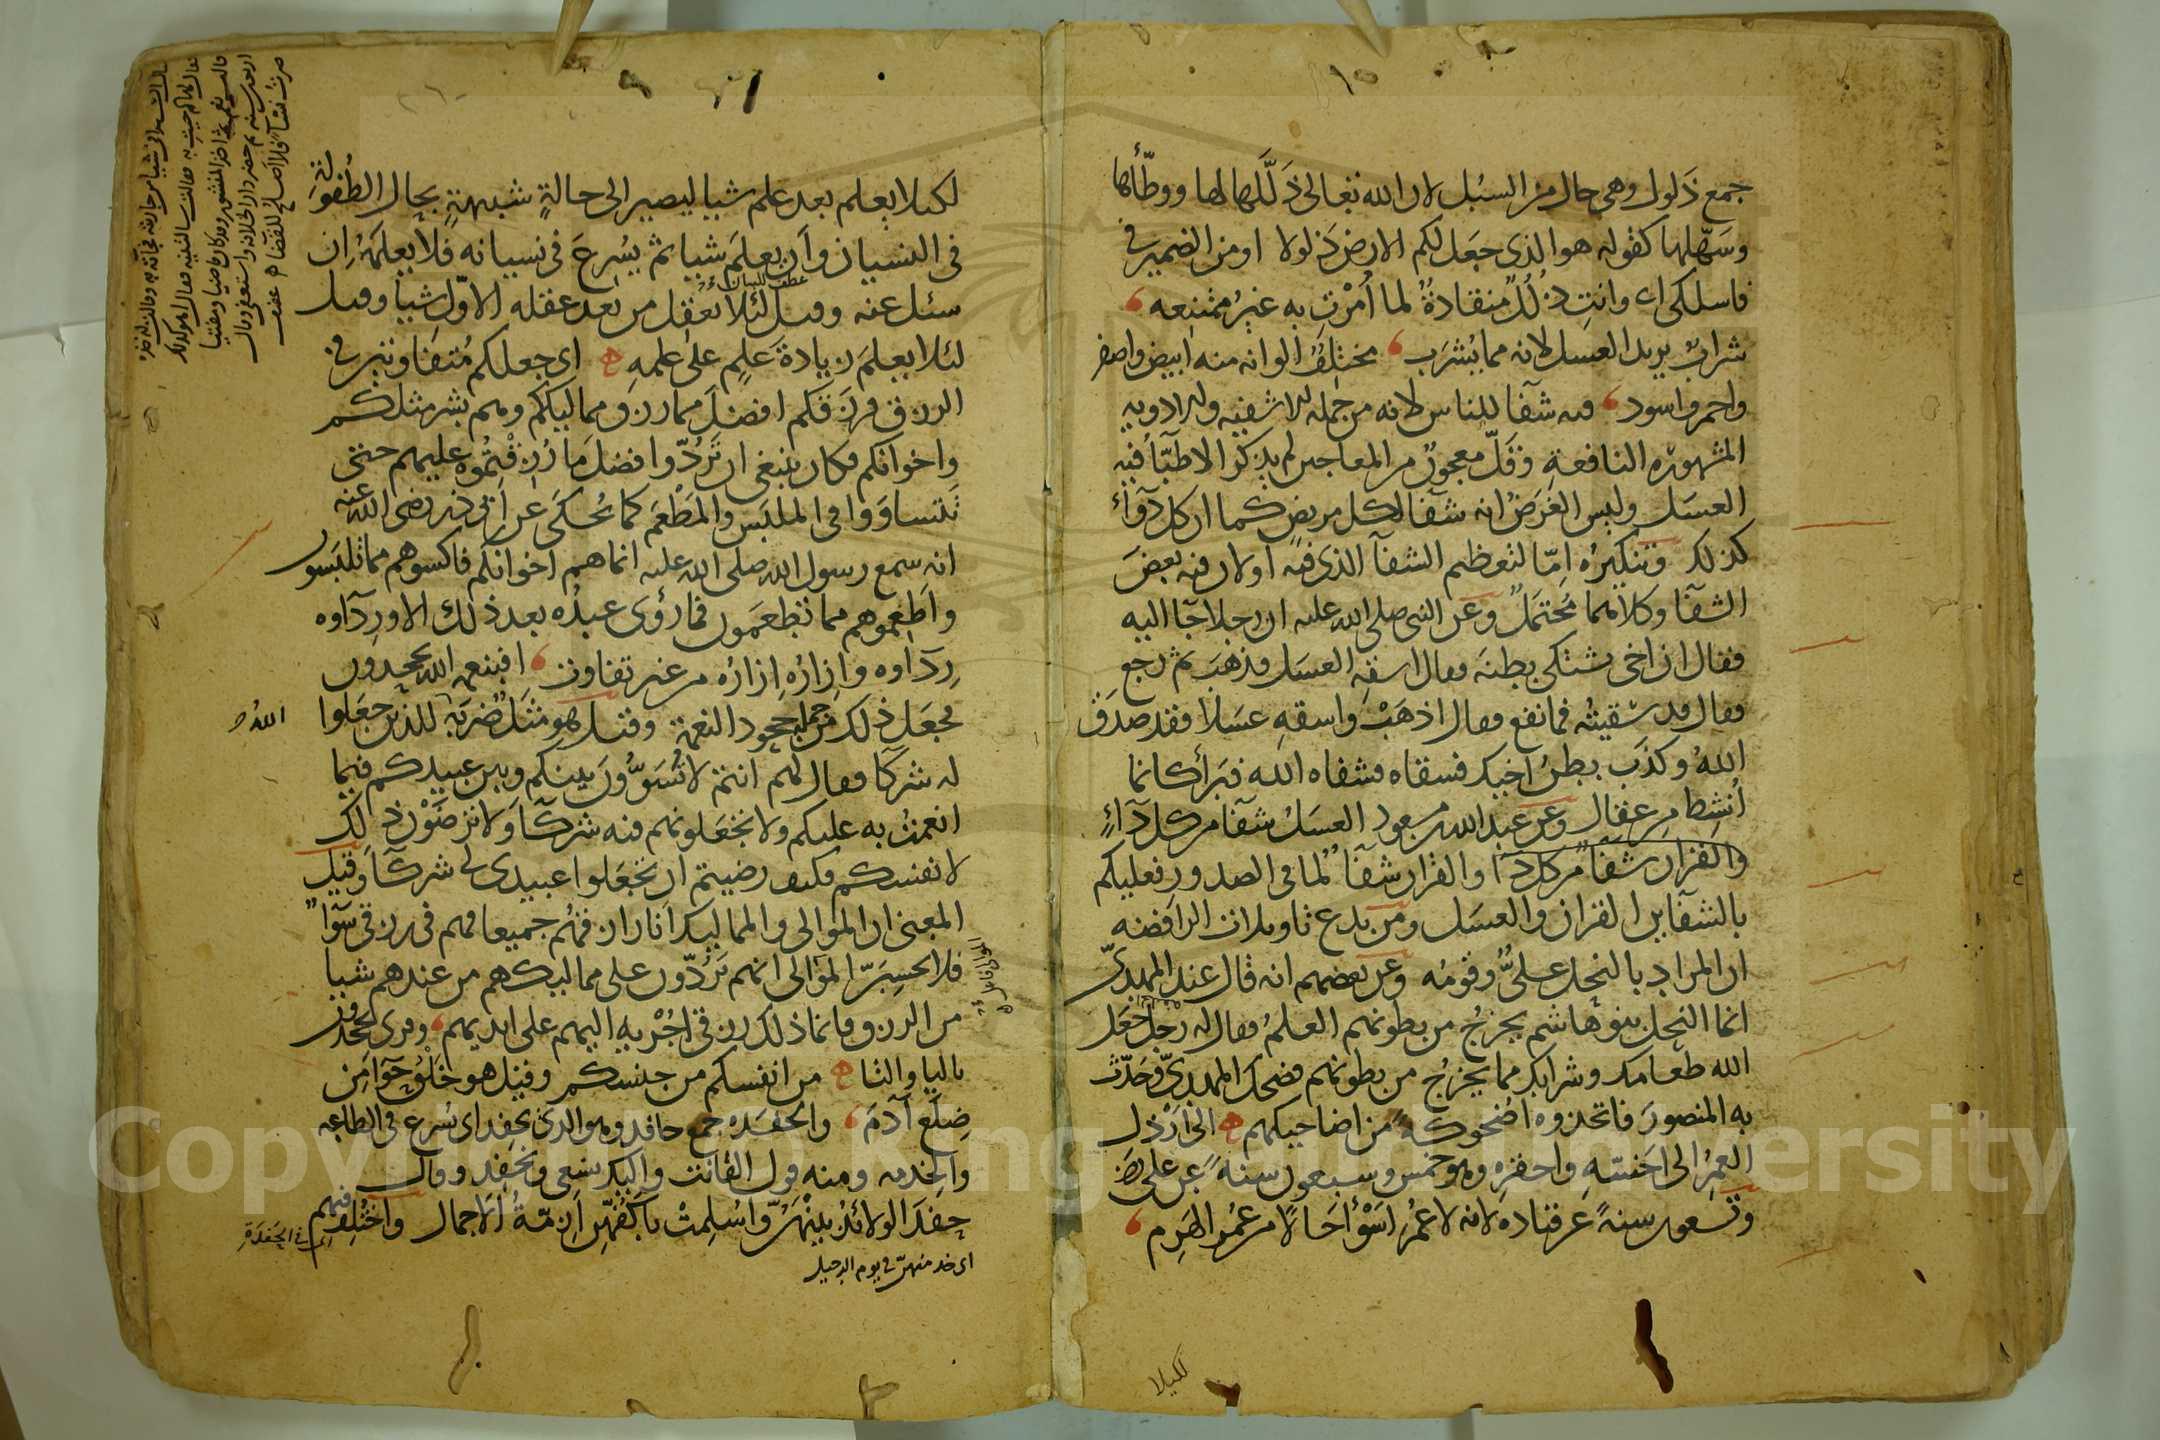 جمع ذَلول وهى حال من السبُل لان الله تعالى ذَلَّلها لها ووطّأها
وسَهّلها كقوله هو الذى جعَل لكم الارض ذَلولا او من الضمير فى
فاسلكى اى وانتِ ذُلُلٌ منقادةٌ لما اُمْرْتِ به غيرُ ممتنعه
شرابٌ يريد العسل لانه مما يُشرَب مختلِفٌ الوانه منه ابيض واصفر
واحمر واسود فيه شفآ للناس لانه من جمله الاشفيه والادويه
المشهوره النافعة وقَلّ معجونٌ من المعاجين لم يذكر الاطبّآ فيه
العسَل وليس الغَرَضُ انه شفآ لكل مريض كما ان كل دوآء
كذلك وتنكيرُه اِمّا لتعظيم الشفآ الذى فيه اولان فيه بعضَ
الشفآ وكلاهما مُحتمَلٌ وعن النبى صلى الله عليه ان رجلا جآ اليه
فقال ان اخى يشتكى بطنَه فقال اسقِه العسَل فذهبَ ثم رجع
فقال قد سَقيتُه فما نفع فقال اذهَبْ واسقهِ عسَلا فقد صدَق
اللهُ وكذَب بطنُ اخيك فسقاه فشفاه الله فبَرأ كانما
اُنشِط من عقال وعن عبد الله بن مسعود العسَلُ شفآ من كل دآءٍ
والقران شفآ من كل دآ والقران شفآ لما فى الصدور فعليكم
بالشفآين القران والعسَل ومن بدع تاويلات الرافضه
ان المراد بالنحل علىٌّ وقومُه وعن بعضهم انه قال عند المهدىّ
انما النحل بنو هاشم يخرجُ من بطونهم العلمُ فقال له رجلٌ جعَل
الله طعامك وشرابك مما يخرجُ من بطونهم فضحك المهدىّ وحَدّث
به المنصورَ فاتخذوه اُضحوكةً من اضاحيكهم الى ارْذَل
العمرُ الى اخَسّهِ واحقرِه وهو خمس وسبعون سنةً عن علىّ رضى
وتسعون سنةً عن قتاده لانه لا عمُر اَسْوَأ حَالًا من عمُر الهَرِم
لكيلا
لكيلا يعلم بعد علم شيا ليصير الى حالةٍ شبيهةٍ بحال الطُفولة
فى النسيان واَن يعلَم شيا ثم يسْرعَ فى نسيانه فلا يعلمَهُ اِن
سئل عنه وقيل لئلا يعقل من بعد عقله الاوّل شيا وقيل
لئلا يعلمَ زيادةَ علمٍ على علمهِ اى جعلكم مُتفاوتين فى
الرزق فرزَقكم افضلَ مما رزق مماليككم وهم بشر مثلكم
واخوانكم فكان ينبغى ان تَرُدّوا فضلَ ما رُزِقْتُموُه عليهم حتى
تَتساوَوا فى الملبَس والمَطْعَم كما يُحكَى عن اَبى ذر رضى الله عنه
انه سمع رسول الله صلى الله عليه انما هم اخوانكم فاكسوهم مما تلبَسون
واَطعِموهم مما تطعَمون فما رؤى عبدُه بعد ذلك الا ورِدآوه
رِدآوه واِزارُه اِزارُه من غير تفاوت افبنعمة الله يجحدون
فجعَل ذلك من جملة جحود النعمة وقيل هو مثَلٌ ضربَه للذين جعَلوا
الله
له شركآ فقال لهم انتم لا تُسَوّونَ بينكم وبين عبيدكم فيما
انعمتُ به عليكم ولا تجعَلونهم فيه شركآ ولا ترضَوْن ذلك
لانفسكم فكيف رضيتم ان تجعَلوا عبيدى لى شركآ وقيل
المعنى ان الموالى والمماليك انا رازقهُم جميعا فهم فى رزقى سَوآ
فلا تحسِبَنّ الموالى انهم يَرُدّون على مماليكهم من عندهم شيا
من الرزق فانما ذلك رزقى اُجْريهِ اليهم على ايديهم وقرى يجحدون
باليا والتا من انفسكم من جنسكم وقيل هو خَلْقُ حَوّآ مِن
ضِلَع آدَمَ والحفَده جمع حافد وهو الذى يحفِد اى يُسرع فى الطاعه
والخدمه ومنه قول القانت واليك نسعى ونَحفِد وقال
حفدَ الولائدُ بينهُنّ واُسْلِمتْ باَكُفّهنّ اَزِمّةُ الاَجمال واختُلِف فيهم
اى خد منهن فى يوم الرحيل